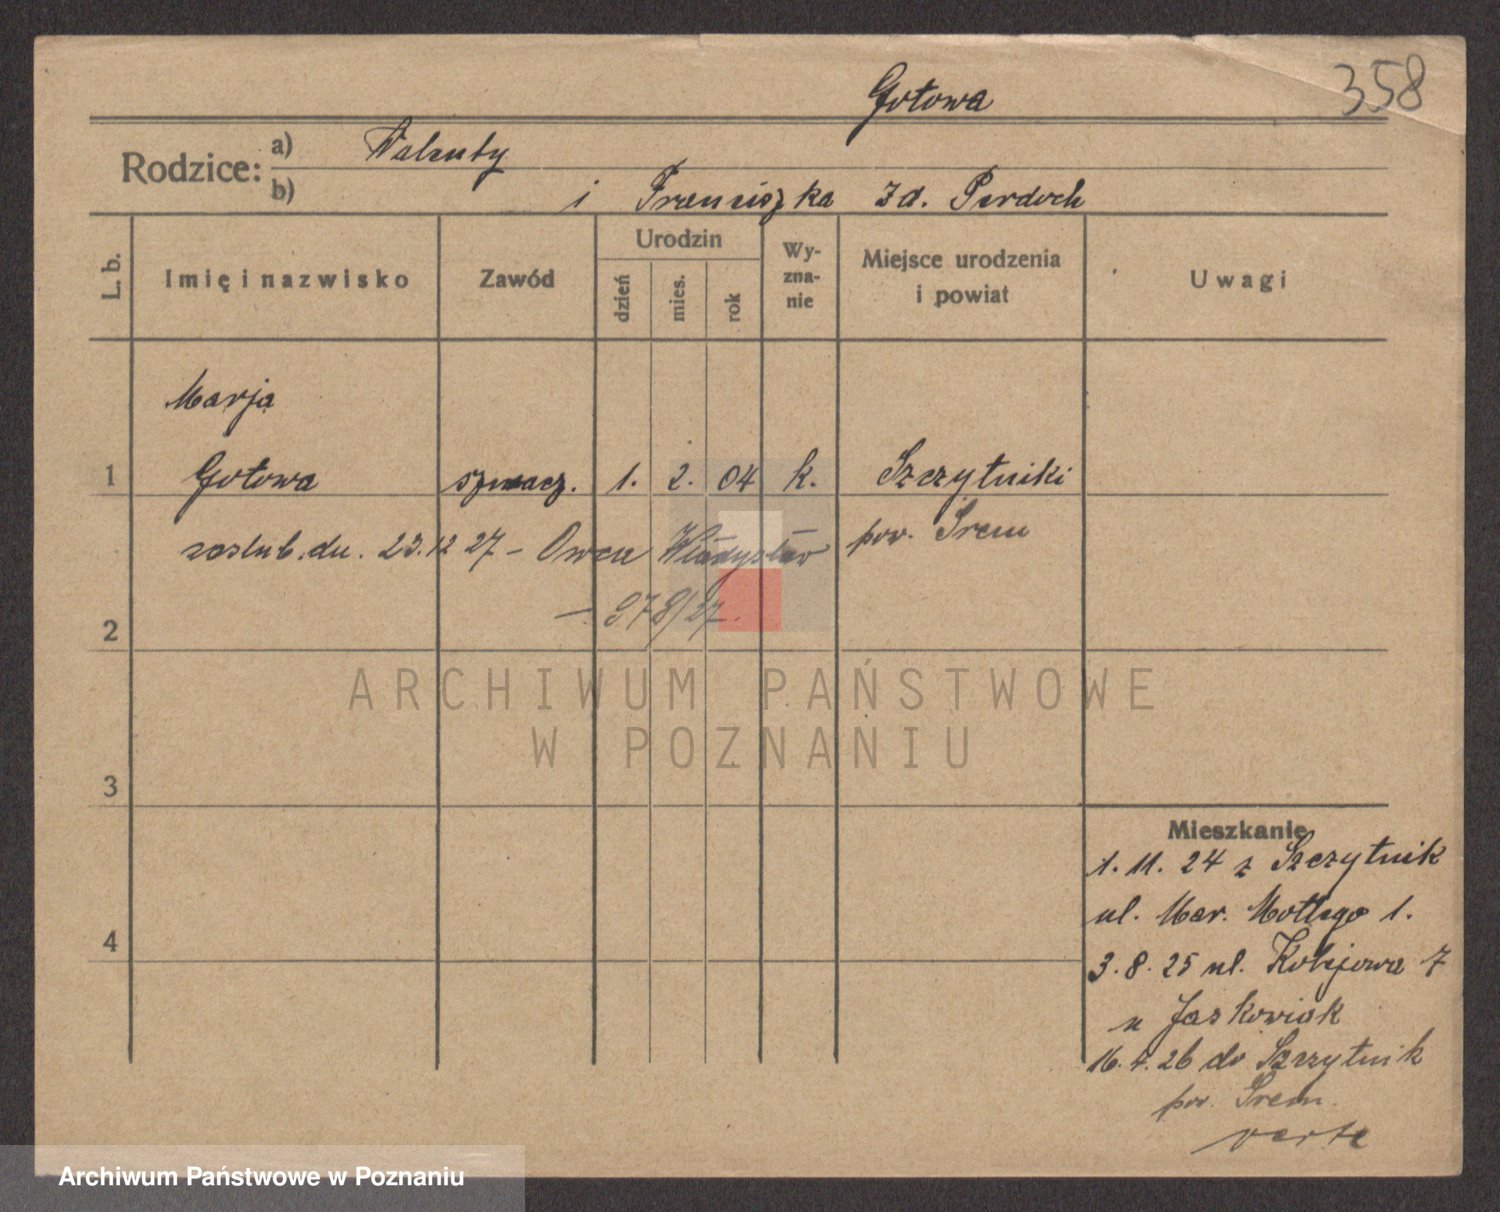 358
Gotowa
Rodzice: a) Walenty
b) i Franciszka zd. Perdoch
L. b.
Imię i nazwisko
Zawód
Urodzin
dzień
mies.
rok
Wy-
zna-
nie
Miejsce urodzenia
i powiat
Uwagi
Marja
1 Gotowa szwacz. 1. 2. 04 k. Szczytniki
zaślub. dn. 23.12 27 – Owca Władysław pow. Śrem
– 978/27.
2
ARCHIWUM PAŃSTWOWE
W POZNANIU
3
Mieszkanie
1. 11. 24 z Szczytnik
ul. Mar. Mottego 1.
4
3. 8. 25 ul. Kolejowa 7
u Jaskowiak
16. 4. 26 do Szczytnik
pow. Śrem.
verte
Archiwum Państwowe w Poznaniu